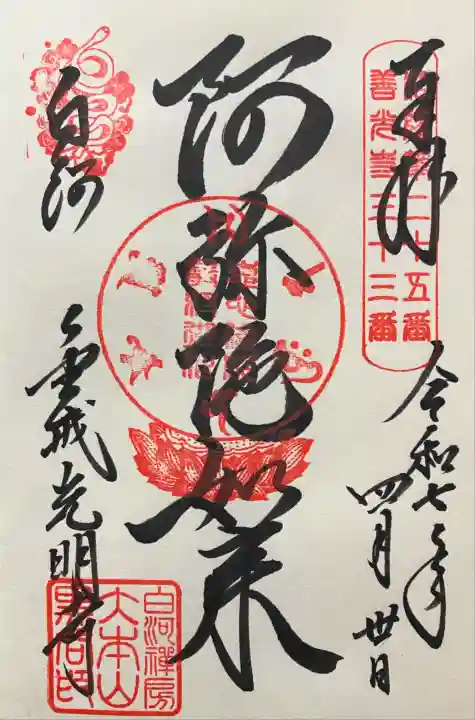 奉拝
二十五番
善光寺三十三番
令和七年
四月卅日
阿弥陀如来
白河
金戒光明寺
白河禅房
大本山